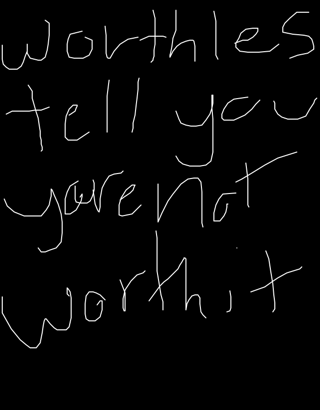 worthles
tell you
youre not
worth it